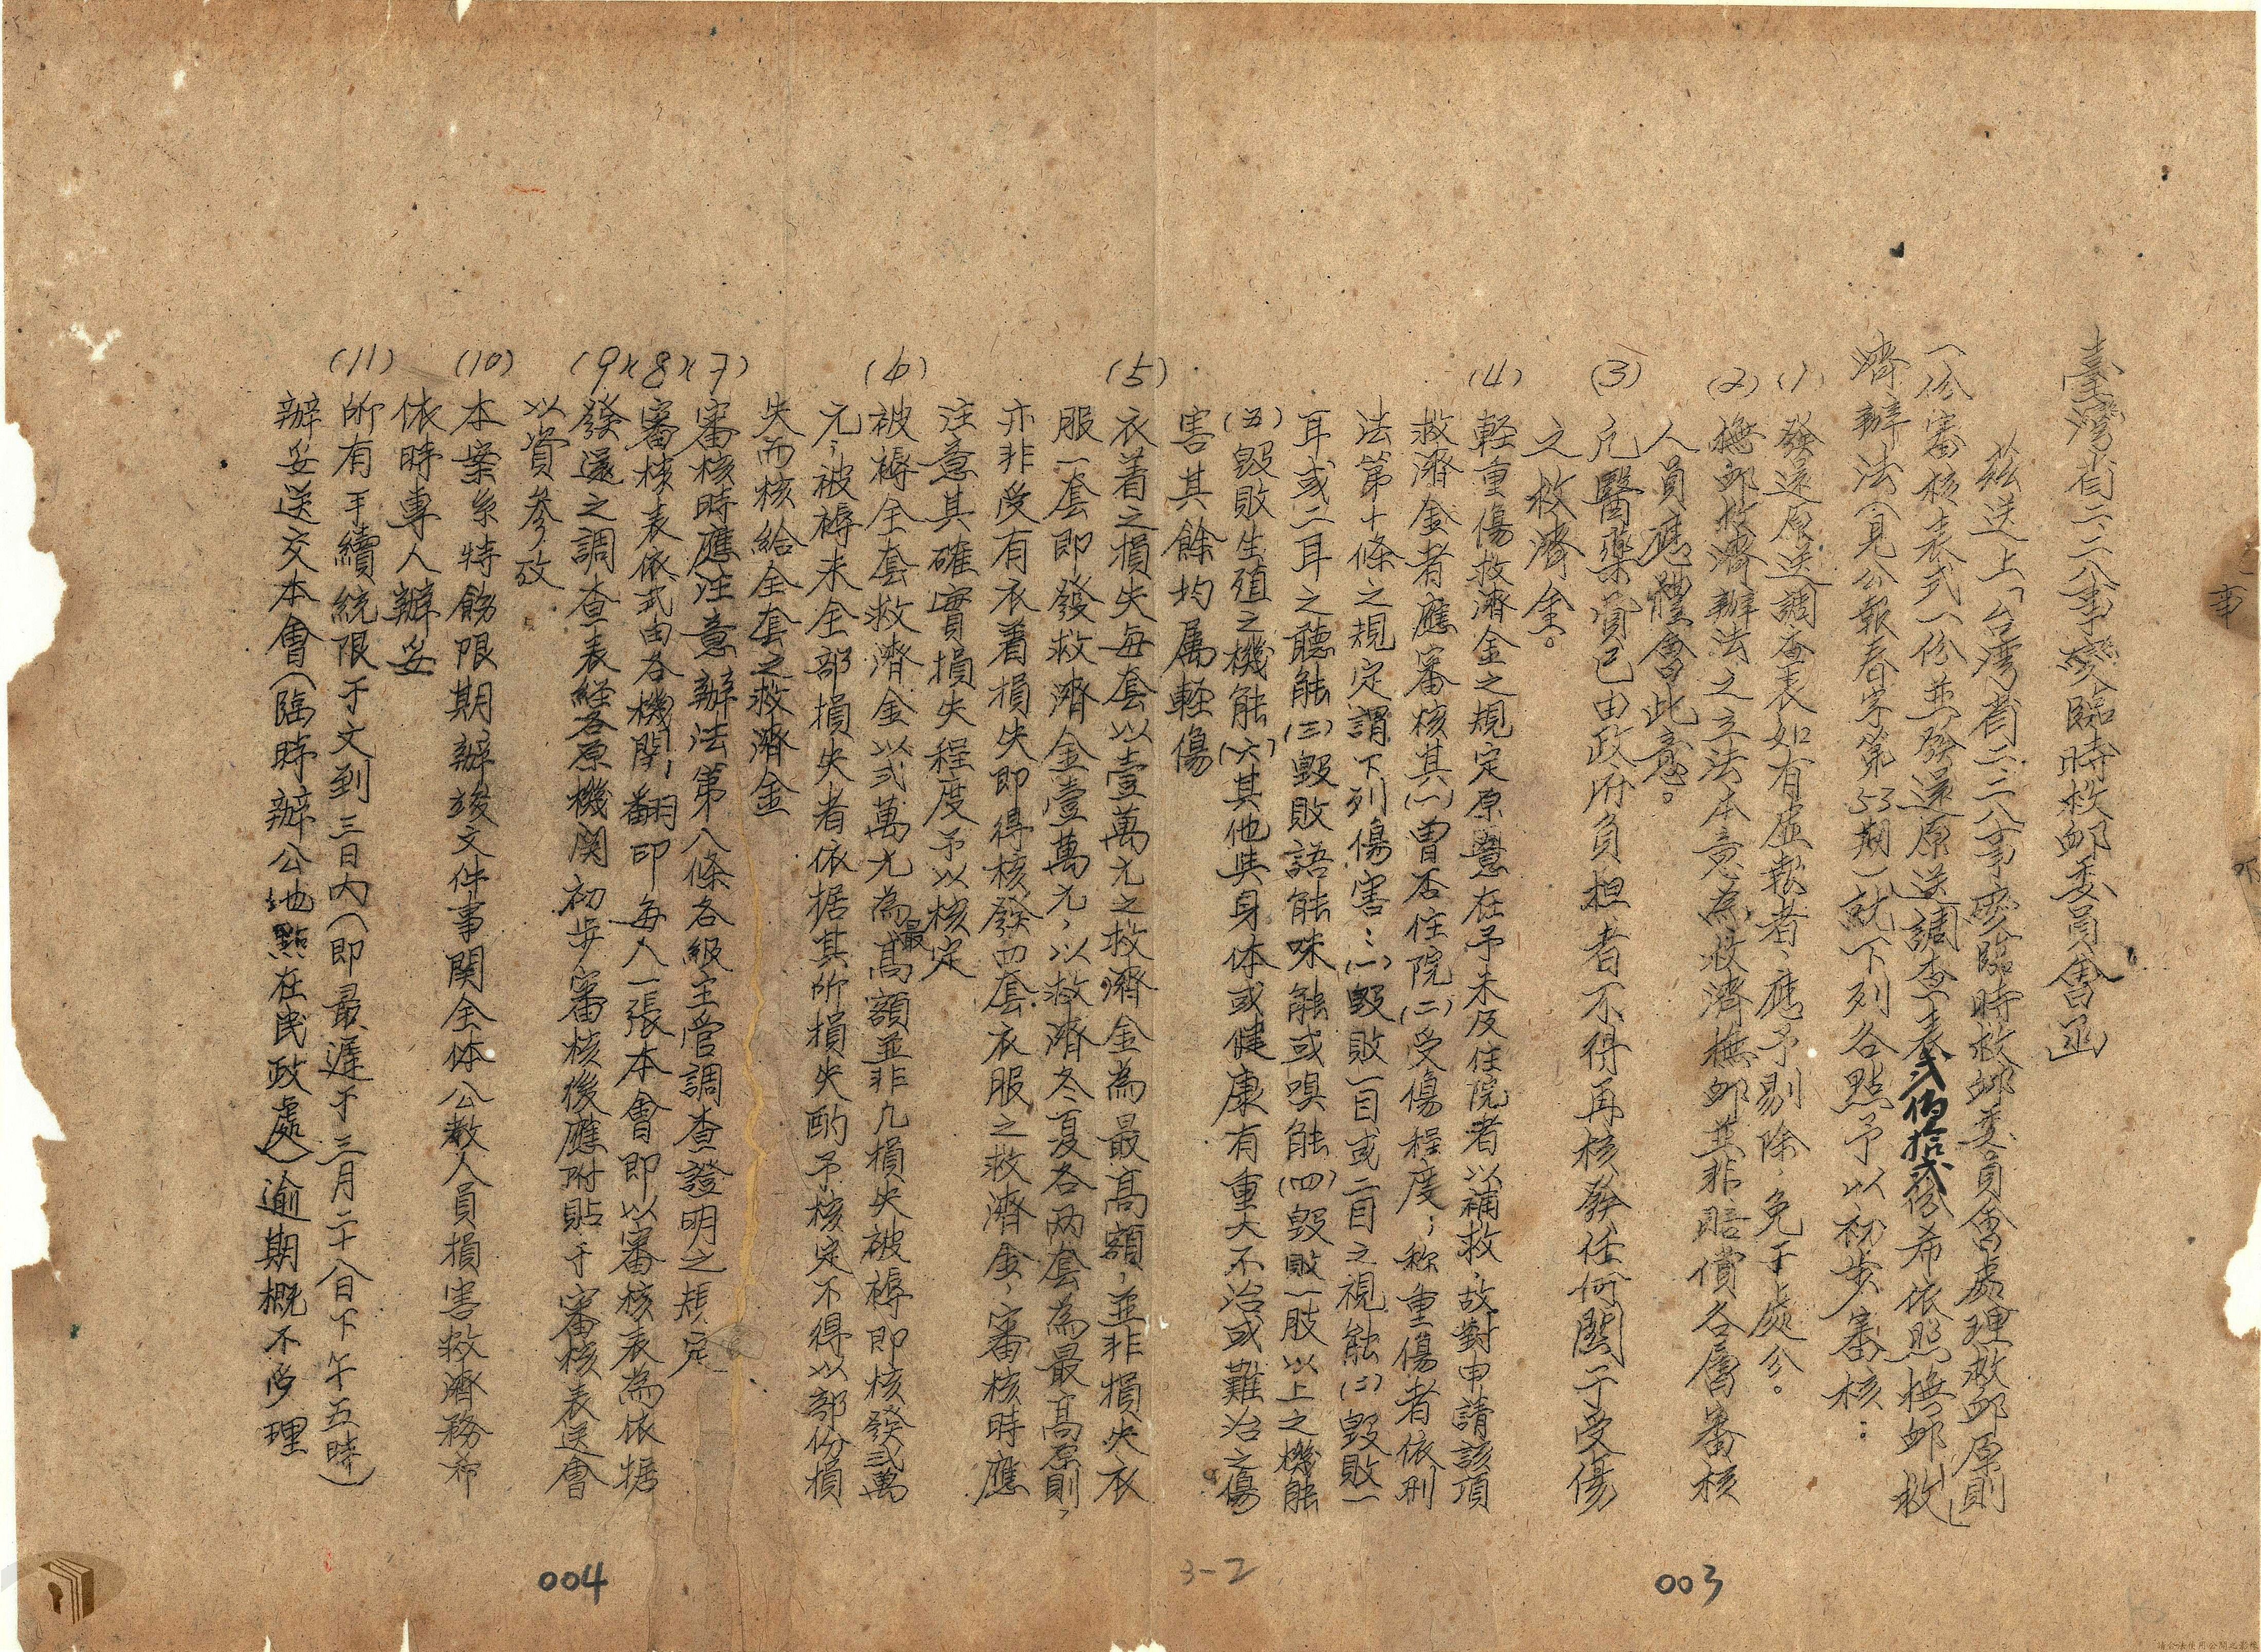 臺灣省二二八事變臨時救邺委員會函
茲送上「台灣省二二八事変臨時救邺委員會處理救邺原則」
一份審核表式一份並發還原送調查表貳佰拾貳份希依照撫邺救
濟辦法(見公報春字第53期)就下列各點予以初步審核：
(1)發還原送調查表如有虛報者、應予剔除、免于處分。
(2)撫邺救濟辦法之立法本意為救濟撫邺並非賠償各層審核
人員應體會此意。
(3)凡醫藥費已由政府負担者不得再核發任何關于受傷
之救濟金。
(4)軽重傷救濟金之規定原意在予未及住院者以補救，故對申請該項
救濟金者應審核其(一)曾否住院(二)受傷程度；称重傷者依刑
法第十條之規定謂下列傷害：(一)毀敗一目或二目之視能(二)毀敗一
耳或二耳之聽能(三)毀敗語能味能或嗅能(四)毀敗一肢以上之機能
(五)毀敗生殖之機能(六)其他與身体或健康有重大不治或難治之傷
害其餘均属軽傷
(5)衣着之損失每套以壹萬元之救濟金為最高額，並非損失衣
服一套即發救濟金壹萬元，以救濟冬夏各两套為最高原則，
亦非受有衣着損失即得核發四套衣服之救濟金，審核時應
注意其確實損失程度予以核定
(6)被褥全套救濟金以弍萬元為最高額並非凡損失被褥即核發弍萬
元，被褥未全部損失者依据其所損失酌予核定不得以部份損
失而核給全套之救濟金
(7)審核時應注意辦法第八條各級主管調查證明之規定
(8)審核表依式由各機関翻印每人一張本會即以審核表為依据
(9)發還之調查表経各原機関初步審核後應附貼于審核表送會
以資參攷
(10)本案系特飭限期辦竣文件事関全体公教人員損害救濟務希
依時專人辦妥
(11)所有手續統限于文到三日內(即最遲于三月二十八日下午五時)
辦妥送交本會(臨時辦公地點在民政處)逾期概不受理
004
3-2
003
事